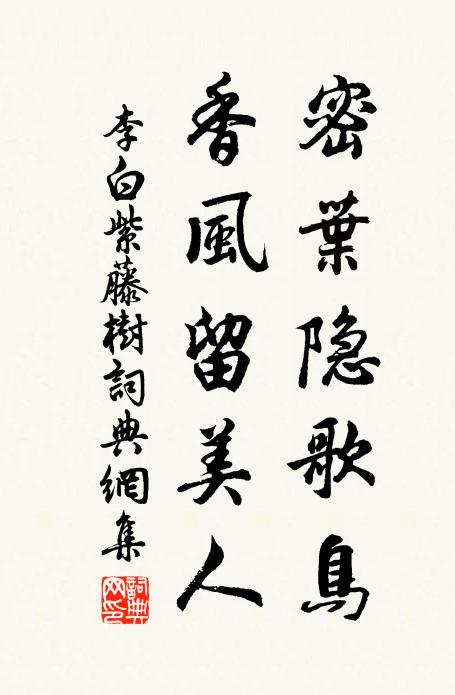 密葉隐歌鳥
香風留美人
李白紫藤樹詞典網集
詞典
网印